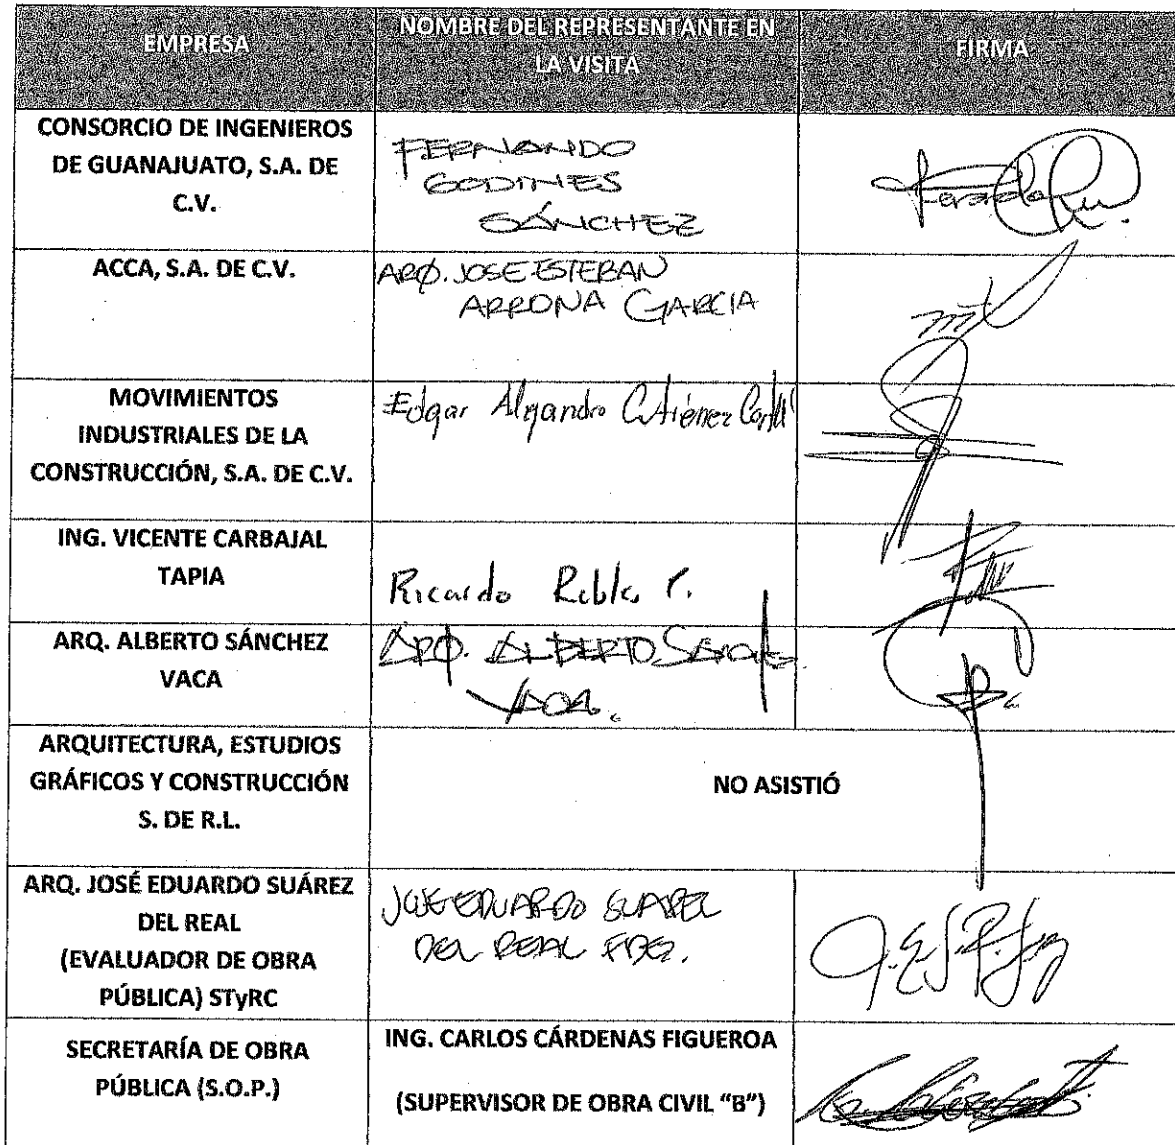 EMPRESA
NOMBRE DEL REPRESENTANTE EN
LA VISITA
FIRMA
CONSORCIO DE INGENIEROS
DE GUANAJUATO, S.A. DE
C.V.
FERNANDO
GODINES
SÁNCHEZ
ACCA, S.A. DE C.V.
ARQ. JOSE ESTEBAN
ARRONA GARCIA
MOVIMIENTOS
INDUSTRIALES DE LA
CONSTRUCCIÓN, S.A. DE C.V.
Edgar Alejandro Gutiérrez
ING. VICENTE CARBAJAL
TAPIA
Ricardo Robles
ARQ. ALBERTO SÁNCHEZ
VACA
ARQ. ALBERTO SÁNCHEZ
VACA.
ARQUITECTURA, ESTUDIOS
GRÁFICOS Y CONSTRUCCIÓN
S. DE R.L.
NO ASISTIÓ
ARQ. JOSÉ EDUARDO SUÁREZ
DEL REAL
(EVALUADOR DE OBRA
PÚBLICA) STyRC
JOSE EDUARDO SUAREZ
DEL REAL FDEZ.
SECRETARÍA DE OBRA
PÚBLICA (S.O.P.)
ING. CARLOS CÁRDENAS FIGUEROA
(SUPERVISOR DE OBRA CIVIL "B")